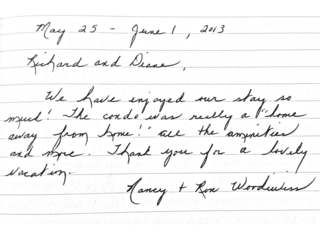 May 25 - June 1, 2013
Richard and Diane,
We have enjoyed our stay so
much! The condo was really a "home
away from home!" all the amenities
and more. Thank you for a lovely
vacation.
Nancy + Ron